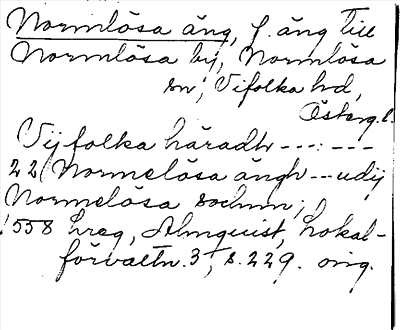 Normlösa äng, f. äng till
Normlösa by, Normlösa
sn, Vifolka hd,
Österg. l.
Vijfolka häradh ---:---
22/ Normelösa ängh --- udij
Normelösa sochnn;
1558 Lreg, Almquist, Lokal-
förvaltn. 3, s. 229. orig.